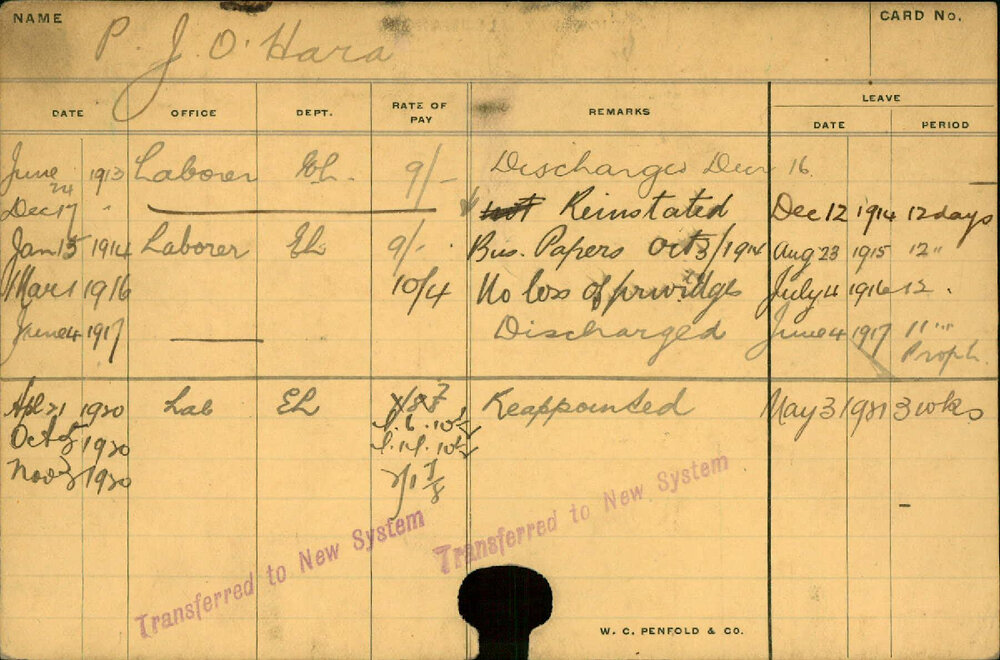 NAME
P. J. O'Hara
CARD No.
DATE OFFICE DEPT. RATE OF PAY REMARKS LEAVE
DATE PERIOD
June 24 1913 Laborer EL. 9/- Discharged Decr 16.
Dec 17 " Reinstated Dec 12 1914 12 days
Jan 15 1914 Laborer EL 9/- Bus. Papers Oct 3/1914 Aug 23 1915 12 "
Mar 1 1916 10/4 No loss of privildge July 4 1916 12 "
June 4 1917 Discharged June 4 1917 11 " "
Proph.
Apl 21 1920 Lab EL Reappointed May 3 1921 3 wks
Oct 5 1920
Nov 3 1920
Transferred to New System
Transferred to New System
W. C. PENFOLD & CO.